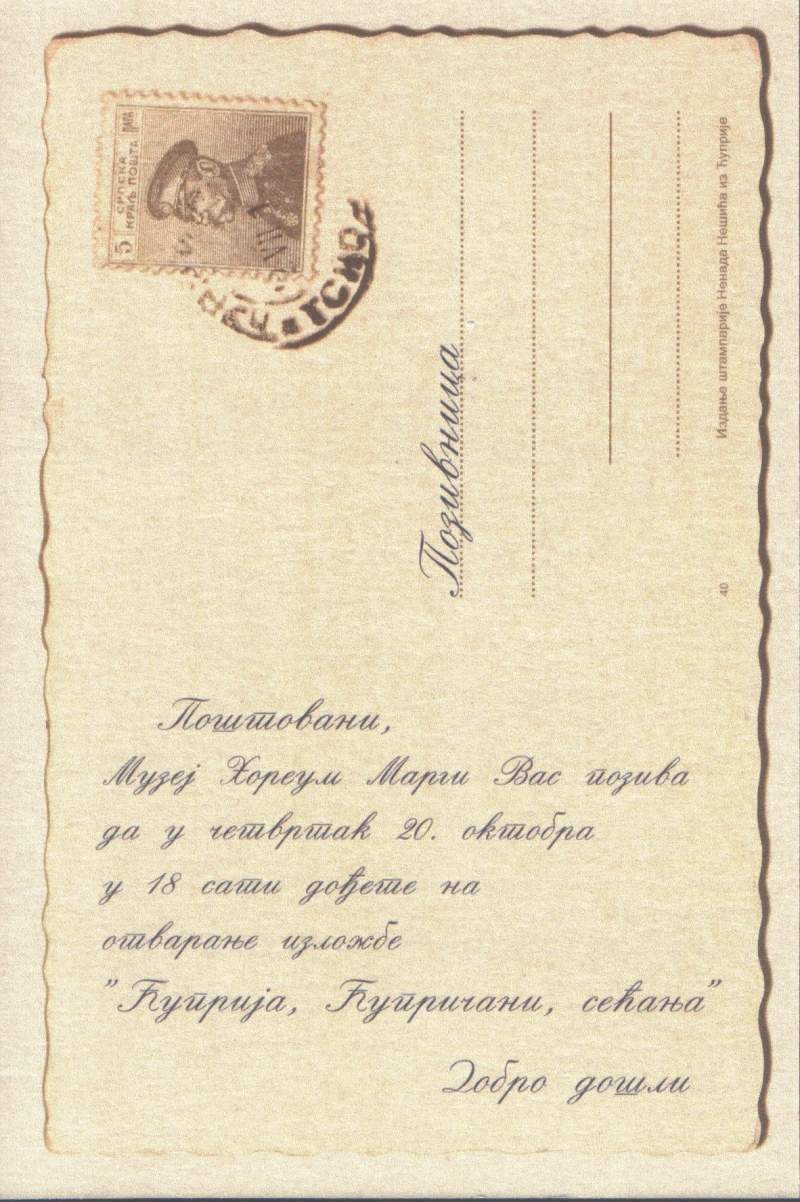 5
СРПСКА
КРАЉ. ПОШТА
ПАРА
Позивница
Издање штампарије Ненада Нешића из Ћуприје
40
Поштовани,
Музеј Хореум Марги Вас позива
да у четвртак 20. октобра
у 18 сати дођете на
отварање изложбе
"Ћуприја, Ћупричани, сећања"
Добро дошли